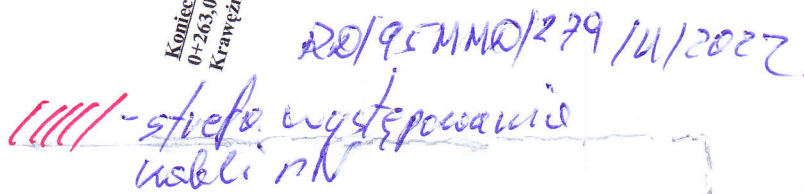 Koniec
0+263,0
Krawężn
RD/95MMD/279/U/2022
- strefa występowania
kabli nN